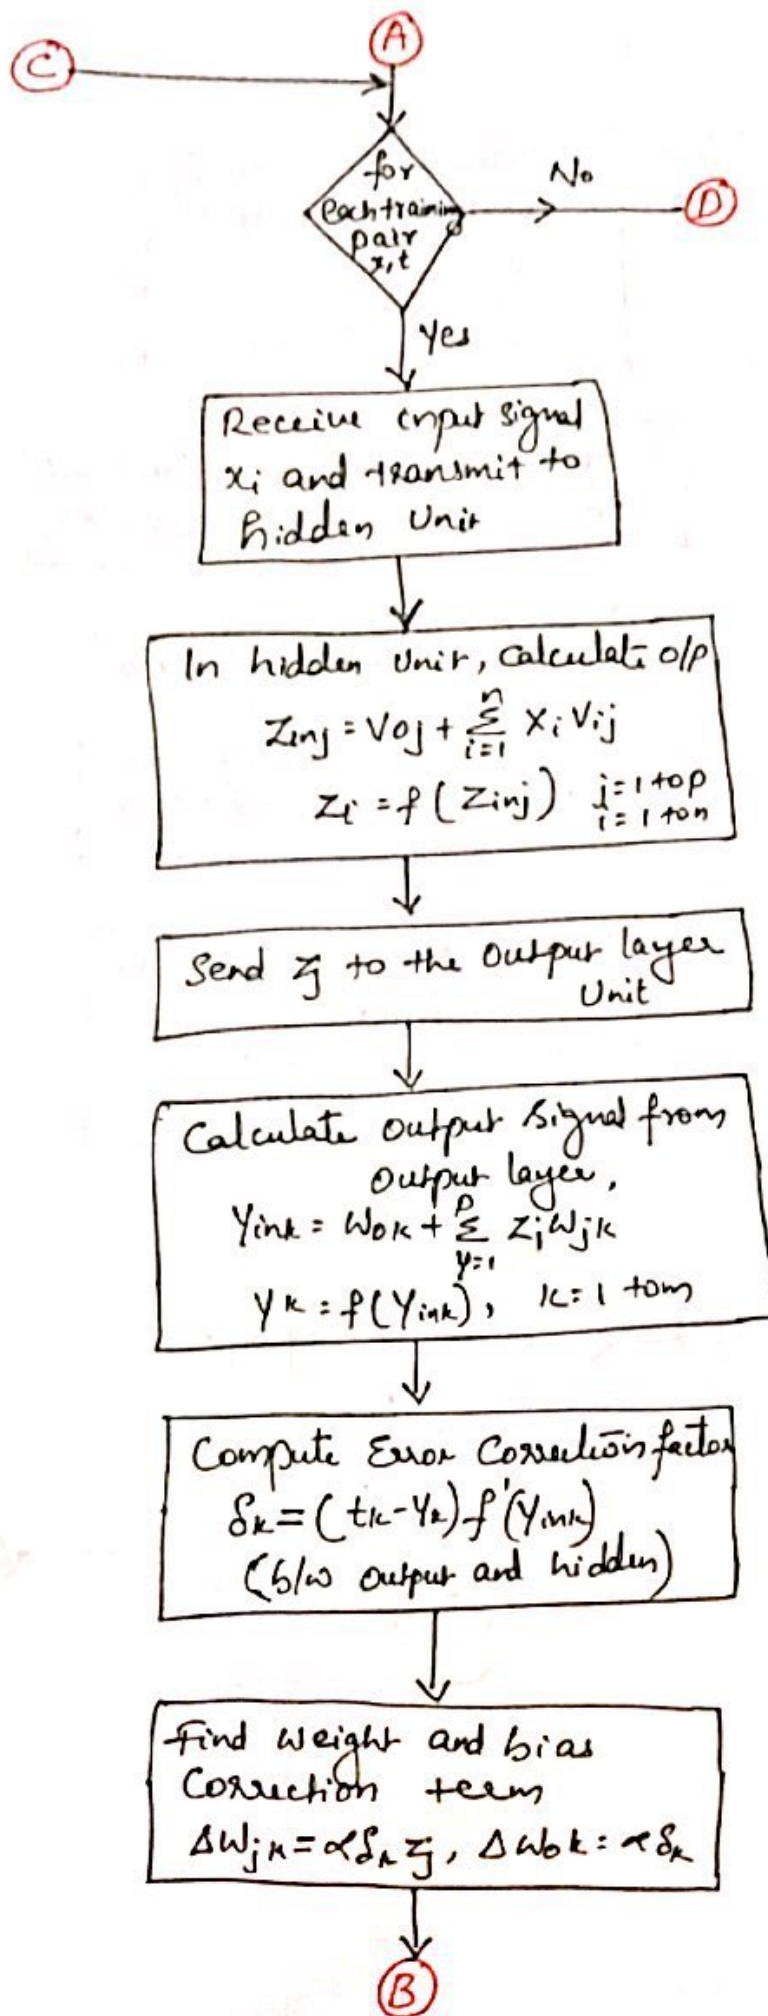 A
C
for
each training
pair
x,t
No
D
Yes
Receive input signal
xi and transmit to
hidden Unit
In hidden unit, Calculate o/p
Zinj = Voj + n Σ i=1 Xi Vij
Zi = f (Zinj) j=1 to p
i=1 to n
Send zj to the Output layer
Unit
Calculate output signal from
output layer,
Yink = Wok + p Σ y=1 Zj Wjk
Yk = f(Yink), k=1 to m
Compute Error Correction factor
δk = (tk-Yk) f'(Yink)
(b/w output and hidden)
Find weight and bias
Correction term
ΔWjk = αδk zj, ΔWok = αδk
B